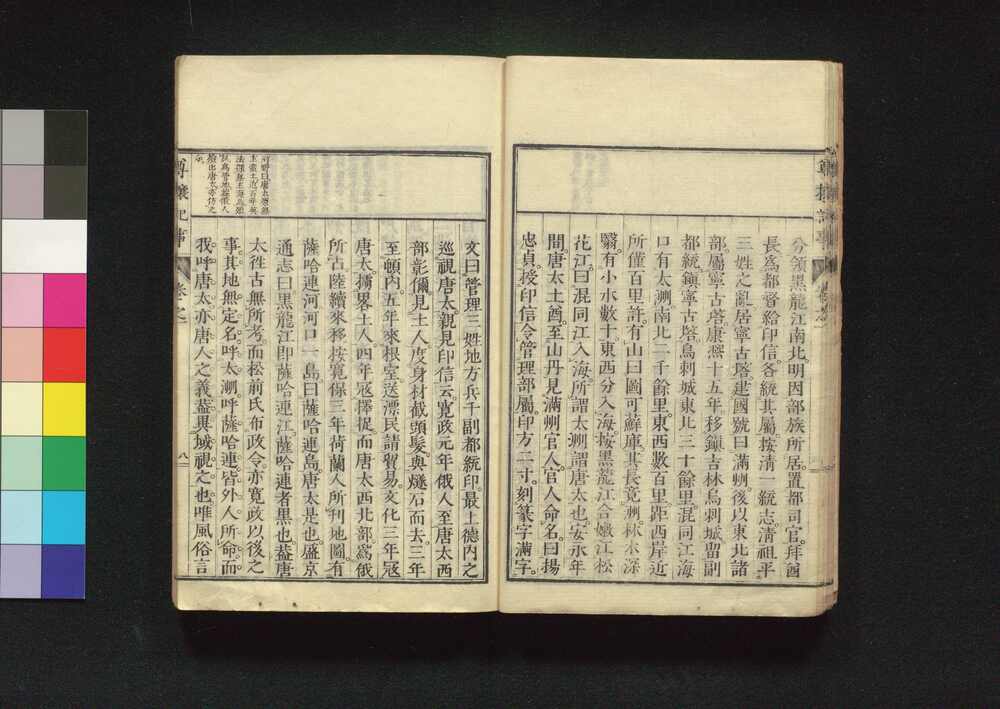 分領黑龍江南北明因部族所居置都司官拜酋
長爲都督給印信各統其屬按淸一統志淸祖平
三姓之亂居寧古塔建國號曰滿洲後以東北諸
部屬寧古塔康熙十五年移鎭吉林烏剌城留副
都統鎭寧古塔烏剌城東北三十餘里混同江海
口有太洲南北二千餘里東西數百里距西岸近
所僅百里許有山曰圖可蘇庫其長竟洲林木深
翳有小水數十東西分入海按黑龍江合嫩江松
花江曰混同江入海所謂太洲謂唐太也安永年
間唐太土酋至山丹見滿州官人官人命名曰揚
忠貞授印信令管理部屬印方二寸刻篆字滿字
文曰管理三姓地方兵千副都統印最上德內之
巡視唐太親見印信云寬政元年俄人至唐太西
部彰儞見土人度身材截頭髮與燧石而去三年
至頓內五年來根室送漂民請貿易文化三年寇
唐太擄畧土人四年寇擇捉而唐太西北部爲俄
所占陸續來移按寬保三年荷蘭人所刊地圖有
薩哈連河河口一島曰薩哈連島唐太是也盛京
通志曰黑龍江卽薩哈連江薩哈連者黑也葢唐
太徃古無所考而松前氏布政令亦寬政以後之
事其地無定名呼太洲呼薩哈連皆外人所命而
我呼唐太亦唐人之義葢異域視之也唯風俗言
尊攘紀事
卷之一
八